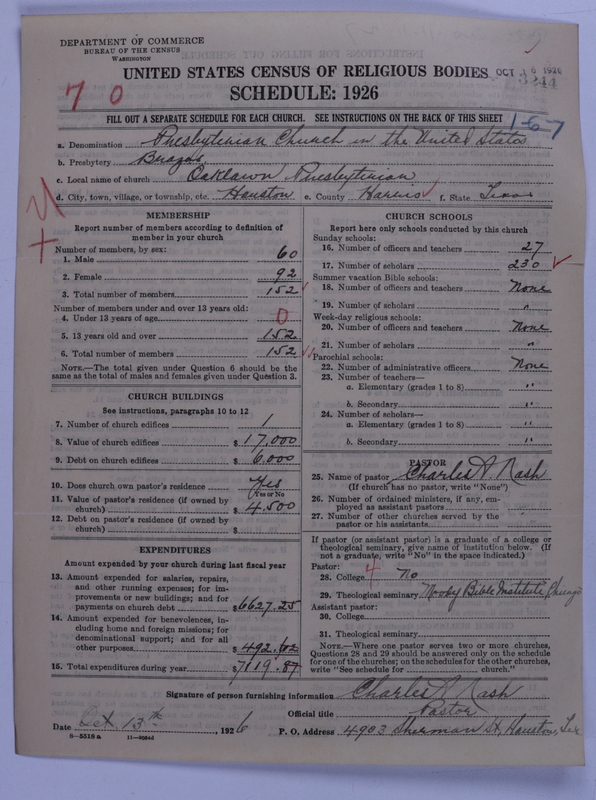 DEPARTMENT OF COMMERCE
BUREAU OF THE CENSUS
WASHINGTON
UNITED STATES CENSUS OF RELIGIOUS BODIES
OCT 16 1926
SCHEDULE: 1926
7 0
FILL OUT A SEPARATE SCHEDULE FOR EACH CHURCH. SEE INSTRUCTIONS ON THE BACK OF THIS SHEET
1-6-7
a. Denomination Presbyterian Church in the United States
b. Presbytery Brazos
c. Local name of church Oaklawn Presbyterian
d. City, town, village, or township, etc. Houston e. County Harris f. State Texas
MEMBERSHIP
Report number of members according to definition of
member in your church
Number of members, by sex:
1. Male 60
2. Female 92
3. Total number of members 152
Number of members under and over 13 years old:
4. Under 13 years of age 0
5. 13 years old and over 152
6. Total number of members 152
NOTE.—The total given under Question 6 should be the
same as the total of males and females given under Question 3.
CHURCH BUILDINGS
See instructions, paragraphs 10 to 12
7. Number of church edifices 1
8. Value of church edifices $17,000
9. Debt on church edifices $6,000
10. Does church own pastor's residence Yes
Yes or No
11. Value of pastor's residence (if owned by
church) $4,500
12. Debt on pastor's residence (if owned by
church) $
EXPENDITURES
Amount expended by your church during last fiscal year
13. Amount expended for salaries, repairs,
and other running expenses; for im-
provements or new buildings; and for
payments on church debt $6627.25
14. Amount expended for benevolences, in-
cluding home and foreign missions; for
denominational support; and for all
other purposes $492.62
15. Total expenditures during year $7119.87
CHURCH SCHOOLS
Report here only schools conducted by this church
Sunday schools:
16. Number of officers and teachers 27
17. Number of scholars 230
Summer vacation Bible schools:
18. Number of officers and teachers None
19. Number of scholars "
Week-day religious schools:
20. Number of officers and teachers None
21. Number of scholars "
Parochial schools:
22. Number of administrative officers None
23. Number of teachers—
a. Elementary (grades 1 to 8) "
b. Secondary "
24. Number of scholars—
a. Elementary (grades 1 to 8) "
b. Secondary "
PASTOR
25. Name of pastor Charles A. Nash
(If church has no pastor, write "None")
26. Number of ordained ministers, if any, em-
ployed as assistant pastors
27. Number of other churches served by the
pastor or his assistants
If pastor (or assistant pastor) is a graduate of a college or
theological seminary, give name of institution below. (If
not a graduate, write "No" in the space indicated.)
Pastor:
28. College 4 No
29. Theological seminary Moody Bible Institute, Chicago
Assistant pastor:
30. College
31. Theological seminary
NOTE.—Where one pastor serves two or more churches,
Questions 28 and 29 should be answered only on the schedule
for one of the churches; on the schedules for the other churches,
write "See schedule for church."
Signature of person furnishing information Charles A. Nash
Official title Pastor
Date Oct. 13th, 1926
P. O. Address 4903 Sherman St, Houston, Tex
8-5518 a